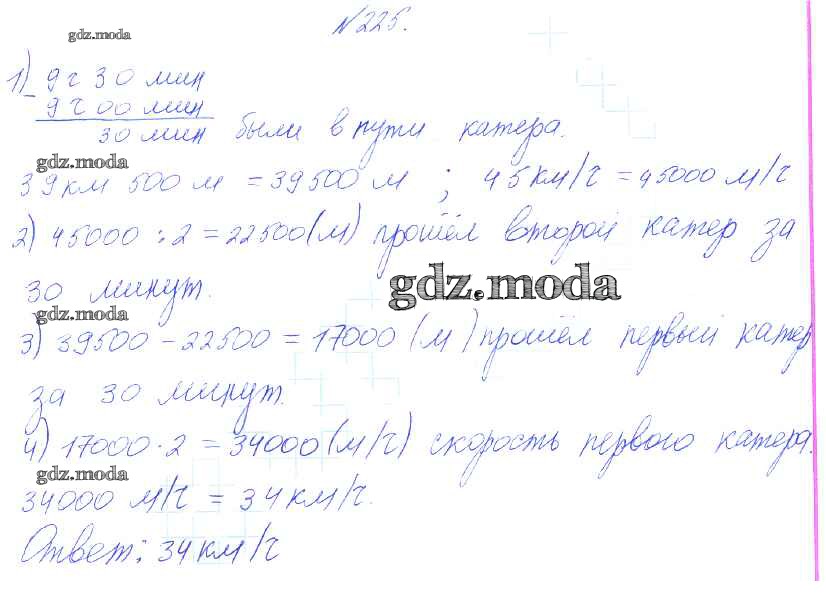 №225.
gdz.moda
1) 9 ч 30 мин
- 9 ч 00 мин
30 мин были в пути катера.
gdz.moda
39 км 500 м = 39500 м ; 45 км/ч = 45000 м/ч
2) 45000 : 2 = 22500 (м) прошёл второй катер за
30 минут.
gdz.moda
gdz.moda
3) 39500 - 22500 = 17000 (м) прошёл первый катер
за 30 минут.
4) 17000 · 2 = 34000 (м/ч) скорость первого катера.
gdz.moda
34000 м/ч = 34 км/ч.
Ответ: 34 км/ч